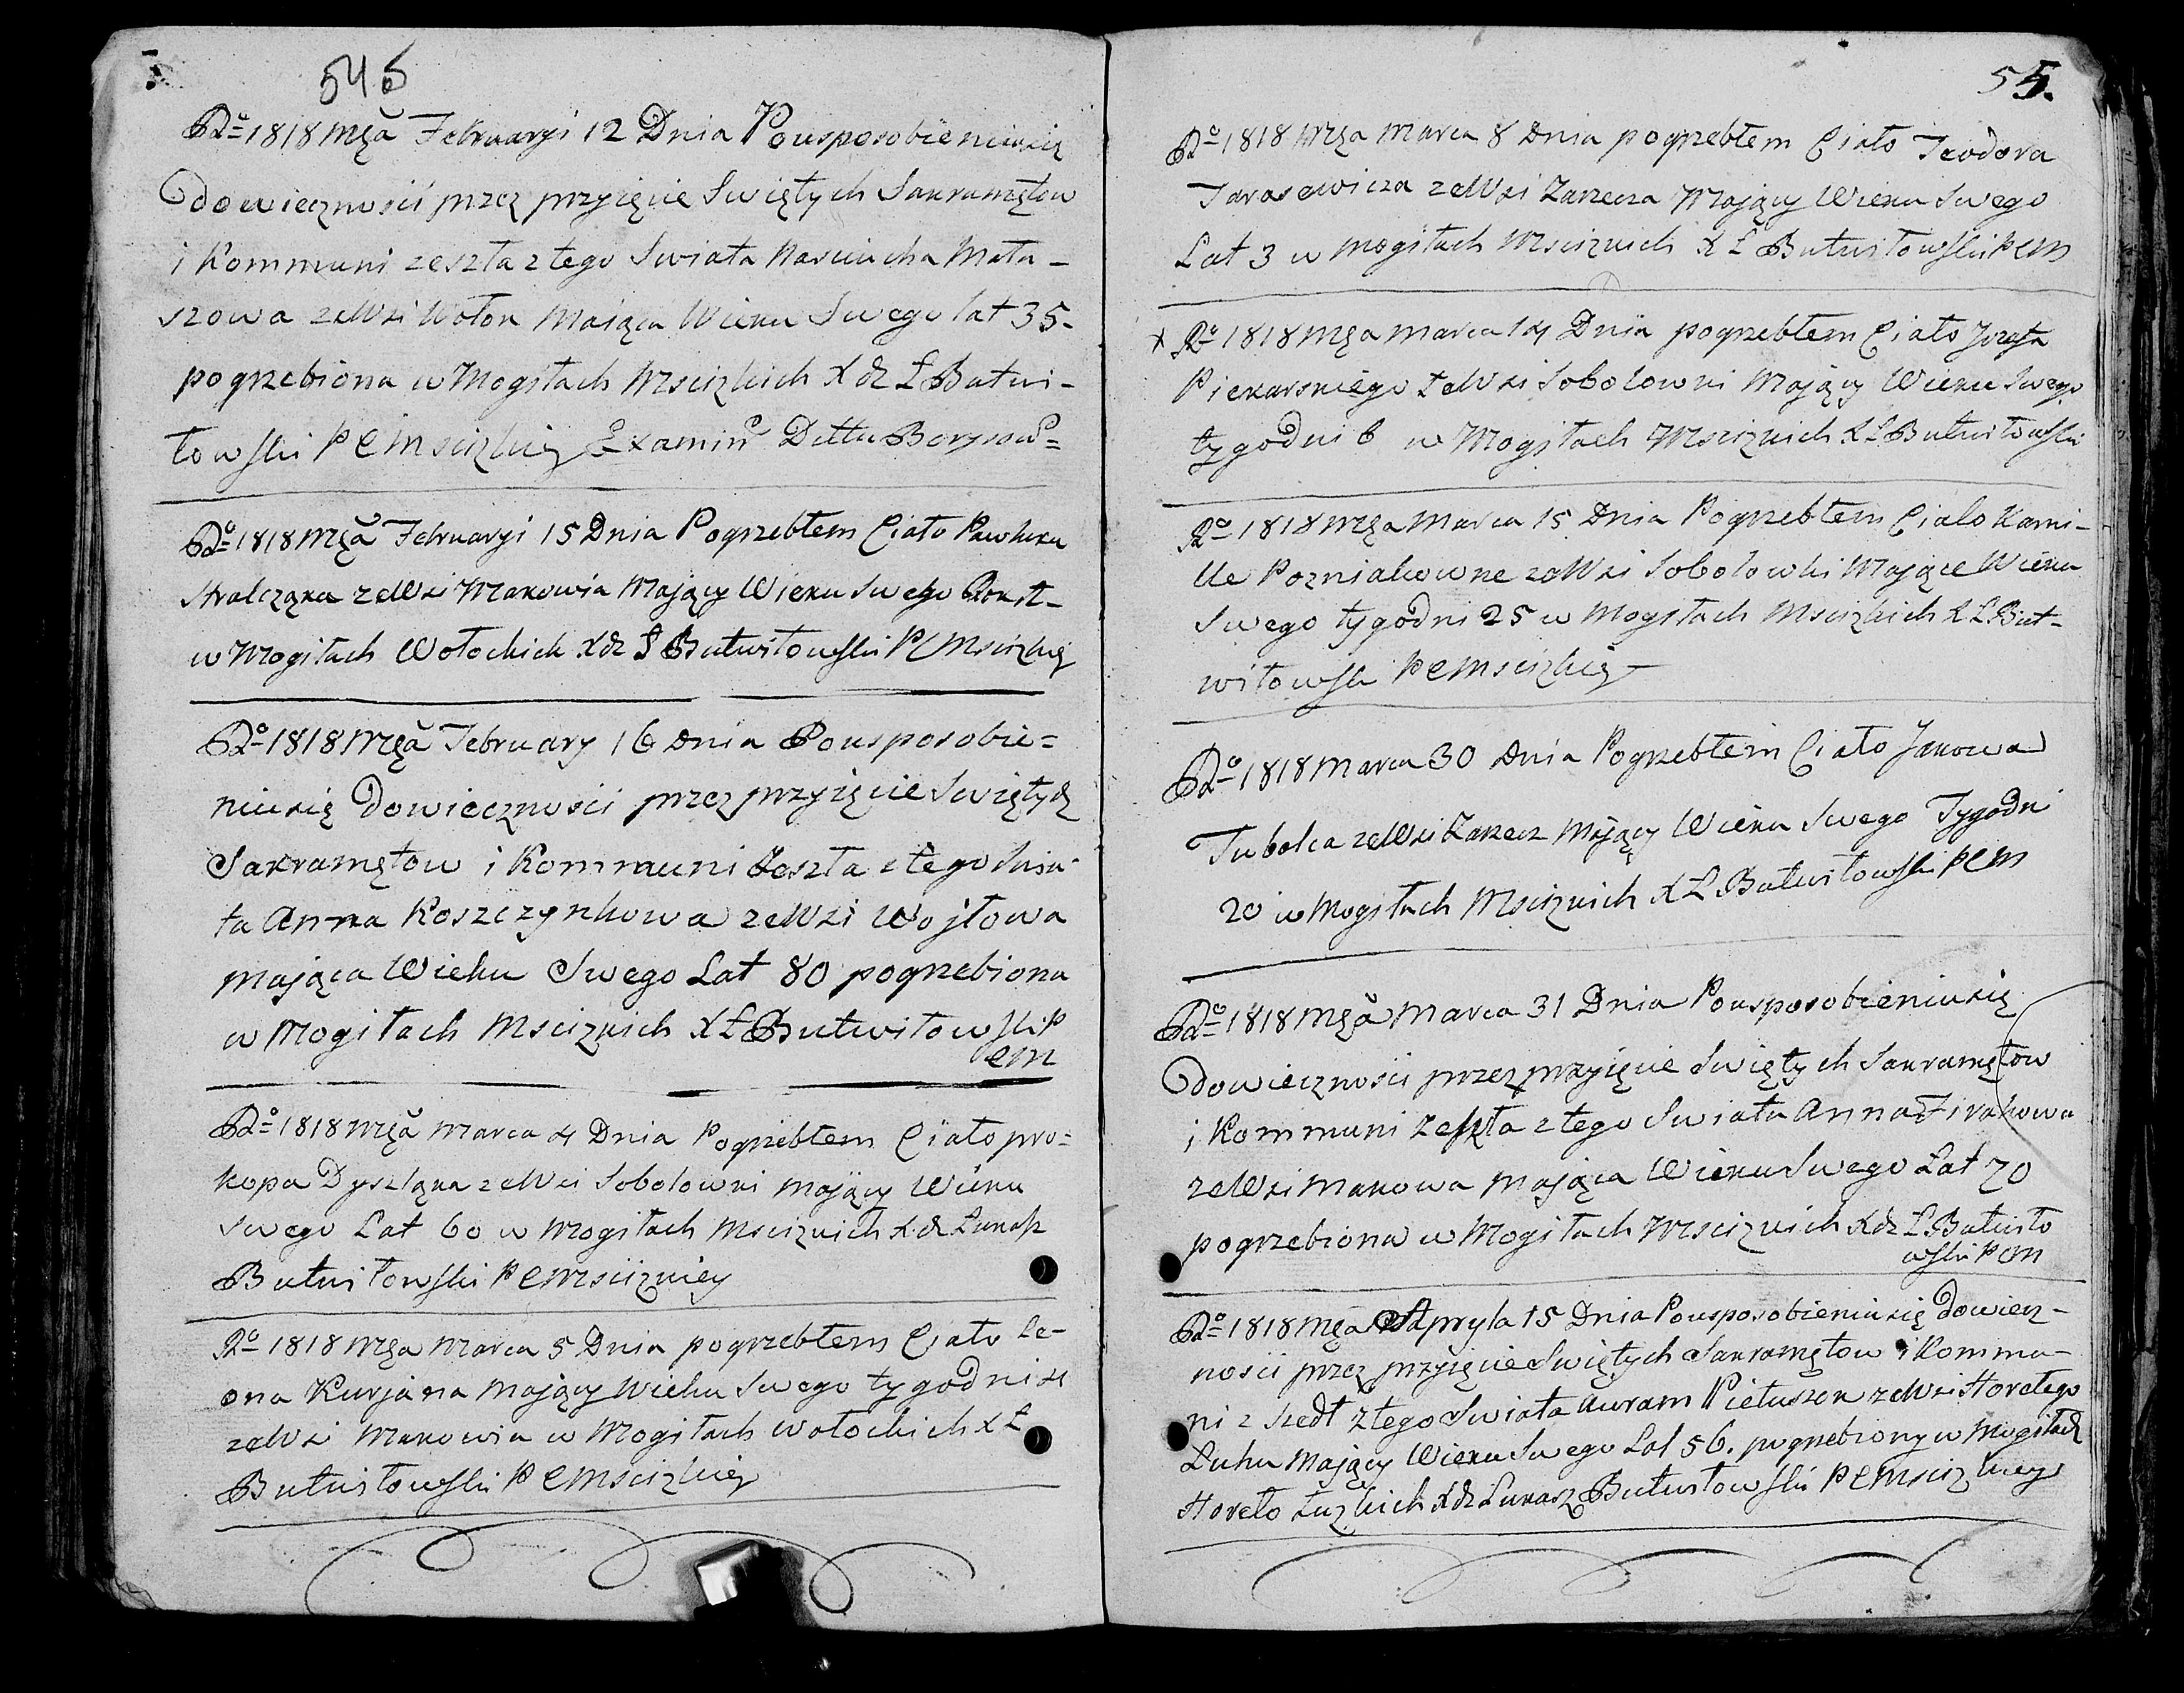 545
Rº 1818 Mcą Februaryi 12 Dnia Pousposobieniusię
dowieczności przez przyięcie Swiętych Sakramętow
i Kommuni zeszła z tego Swiata Nasciucha Mata-
szowa zeWsi Wołok Maiąca Wieku Swego lat 35.
pogrzebiona w Mogiłach Mscizkich Xdz Ł Butwi-
łowski P C Mscizkiey Examinº Dttu Borysowº
Rº 1818 Mcą Februaryi 15 Dnia Pogrzebłem Ciało Pawluka
Stralcząka zeWsi Makowia Mający Wieku Swego Rok 1t-
w Mogiłach Wołockich Xdz Ł Butwiłowski P C Mscizkiey
Rº 1818 Mcą February 16 Dnia Pousposobie=
niusię Dowieczności przez przyięcie Swiętych
Sakramętow i Kommuni Zeszła z tego Swia-
ta Anna Koszczynkowa zeWsi Wojłowa
mająca Wieku Swego Lat 80 pogrzebiona
w Mogiłach Mscizkich X Ł Butwiłowski P
CM
Rº 1818 Mcą Marca 4 Dnia Pogrzebłem Ciało Pro=
kopa Dyszląka zeWsi Sobolowki Mający Wieku
Swego Lat 60 w Mogiłach Mscizkich Xdz Łukasz
Butwiłowski P C Mscizkiey
Rº 1818 Mca Marca 5 Dnia pogrzebłem Ciało Le-
ona Kurjana Mający Wieku Swego tygodni 4
zeWsi Makowia w Mogiłach Wołockich X Ł
Butwiłowski P C Mscizkiey
55.
Rº 1818 Mca Marca 8 Dnia pogrzebłem Ciało Teodora
Tarasewicza zeWsi Zarzecza Mający Wieku Swego
Lat 3 w Mogiłach Mscizkich X Ł Butwiłowski PCM
x Rº 1818 Mca Marca 14 Dnia pogrzebłem Ciało Jozefa
Piekarskiego zeWsi Sobolowki Mający Wieku Swego
tygodni 6 w Mogiłach Mscizkich X Ł Butwiłowski
Rº 1818 Mca Marca 15 Dnia Pogrzebłem Ciało Kami-
lle Pozniakowne zeWsi Sobolowki Mające Wieku
Swego tygodni 25 w Mogiłach Mscizkich X Ł But-
wiłowski P C Mscizkiey
Rº 1818 Marca 30 Dnia Pogrzebłem Ciało Jakowa
Tubolca zeWsi Zarzecz Mający Wieku Swego Tygodni
20 w Mogiłach Mscizkich X Ł Butwiłowski PCM
Rº 1818 Mcą Marca 31 Dnia Pousposobieniusię
dowieczności przez przyięcie Swiętych Sakramętow
i Kommuni Zeszła z tego Swiata Anna Zirakowa
zeWsi Makowa mająca Wieku Swego Lat 70
pogrzebiona w Mogiłach Mscizkich Xdz Ł Butwiło
wski PCM
Rº 1818 Mca Apryla 15 Dnia Pousposobieniusię Dowiecz-
ności przez przyięcie Swiętych Sakramętow i Kommu-
ni z szedł z tego Swiata Awram Pietuszek zeWsi Horełego
Łuhu Mający Wieku Swego Lat 56. pogrzebiony w Mogiłach
Horeło Łuzkich Xdz Łukasz Butwiłowski P C Mscizkiey